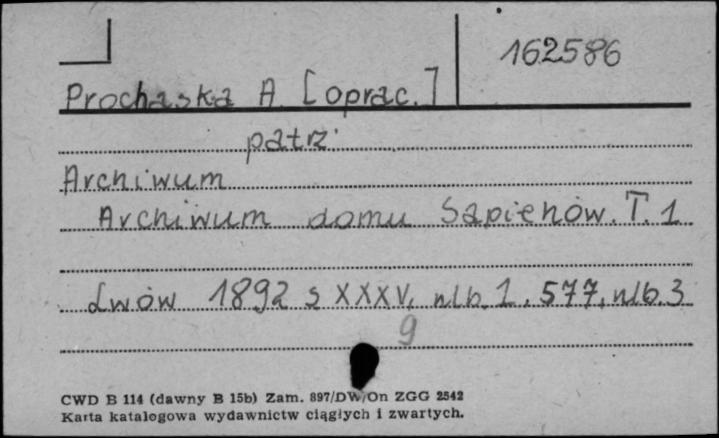 162586
Prochaska A. [oprac.]
patrz:
Archiwum
Archiwum domu Sapiehów. T. 1
Lwów 1892 s XXXV, nlb. 1, 577, nlb. 3
9
CWD B 114 (dawny B 15b) Zam. 897/DW/On ZGG 2542
Karta katalogowa wydawnictw ciągłych i zwartych.